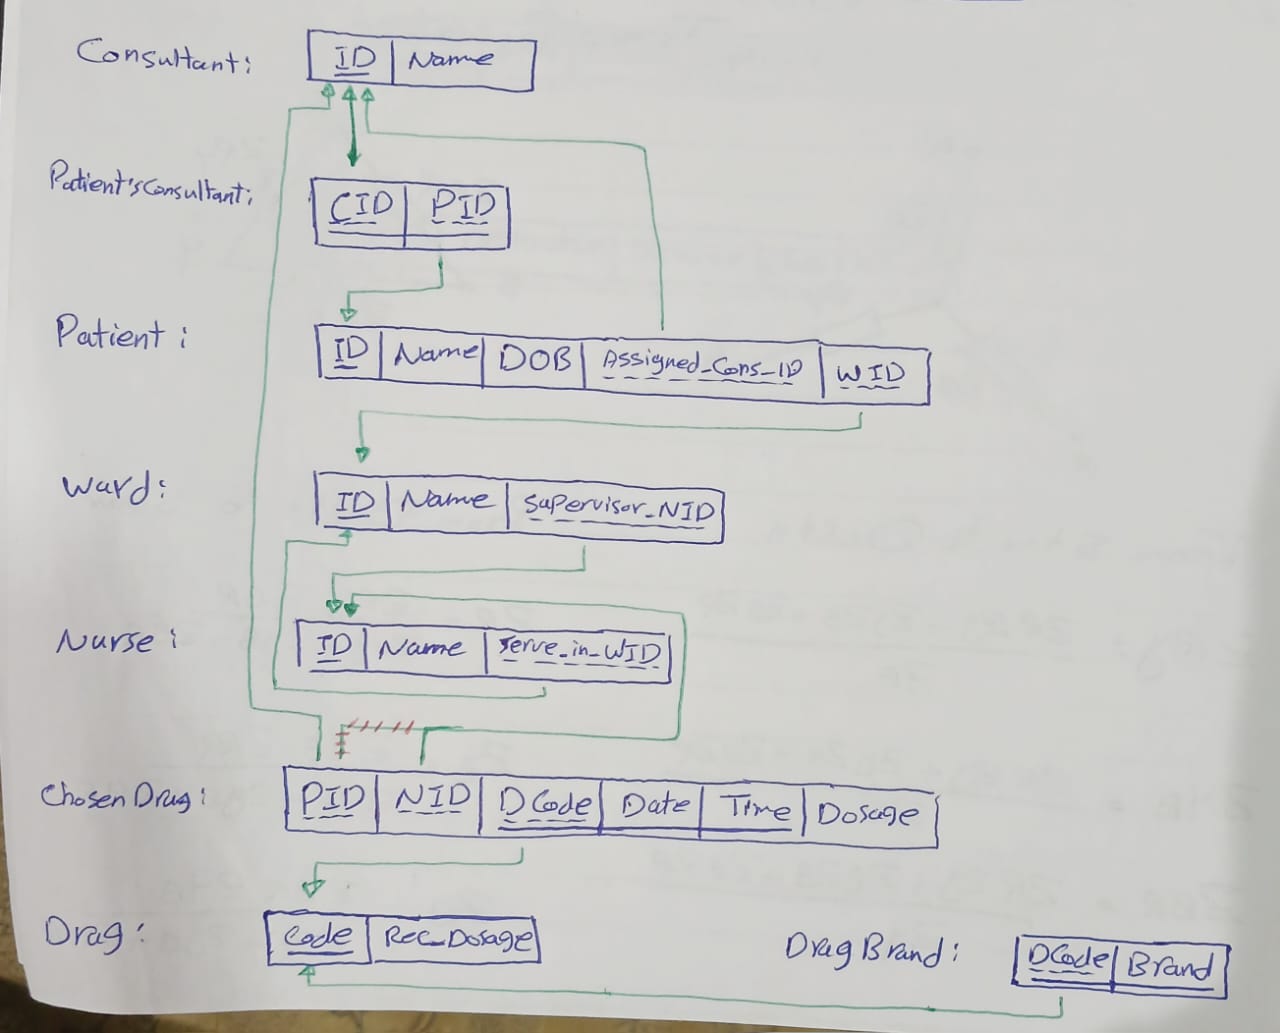 Consultant: ID Name
Patient'sConsultant: CID PID
Patient: ID Name DOB Assigned_Cons_ID WID
Ward: ID Name Supervisor_NID
Nurse: ID Name Serve_in_WID
Chosen Drag: PID NID DCode Date Time Dosage
Drag: Code Rec_Dosage
Drag Brand: DCode Brand